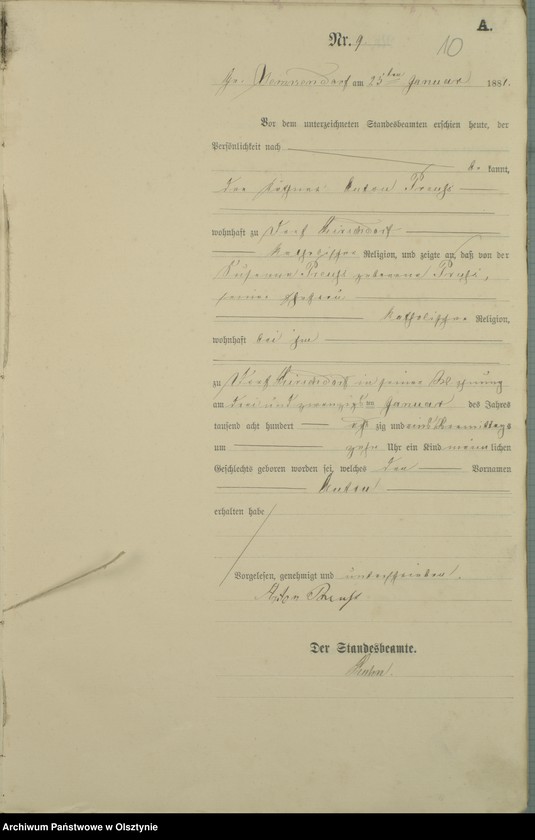 A.
Nr. 9
10
Gr. am 25ten Januar 1881.
Vor dem unterzeichneten Standesbeamten erschien heute, der
Persönlichkeit nach
be kannt,
der Anton Preuß
wohnhaft zu Dorf
katholischer Religion, und zeigte an, daß von der
Susanna Preuß geborene
seiner Ehefrau
katholischer Religion,
wohnhaft bei ihm
zu Dorf in seiner Wohnung
am drei und zwanzigsten Januar des Jahres
tausend acht hundert acht zig und eins Vormittags
um zehn Uhr ein Kind männlichen
Geschlechts geboren worden sei, welches den Vornamen
Anton
erhalten habe
Vorgelesen, genehmigt und unterschrieben.
Anton Preuß.
Der Standesbeamte.
Archiwum Państwowe w Olsztynie